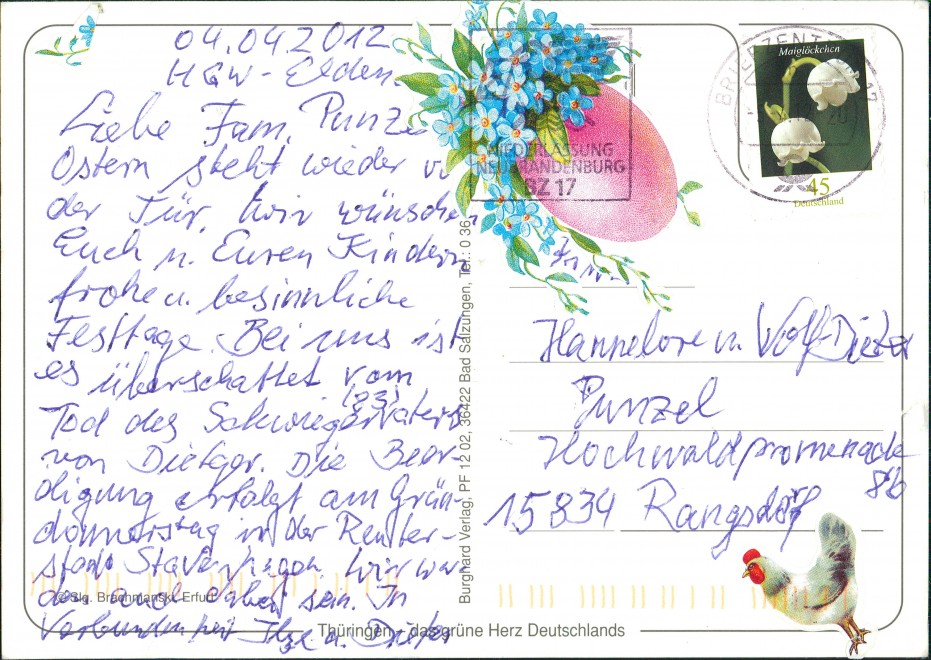 04.04.2012
HGW-Elden
Liebe Fam. Punze
Ostern steht wieder v
der Tür, wir wünschen
Euch u. Euren Kindern
frohe u. besinnliche
Festtage. Bei uns ist
es überschattet vom
Tod des Schwiegervaters
von Dietger. Die Beer-
digung erfolgt am Grün-
donnerstag in der Reuter-
stadt Stavenhagen. Wir
dabei sein. In
Verbundenheit Ilse u.
© Slg. Brachmanski, Erfurt
Thüringen - das grüne Herz Deutschlands
Burghard Verlag, PF 12 02, 36422 Bad Salzungen, Tel.: 0 36
NIEDERLASSUNG
NEUBRANDENBURG
BZ 17
BRIEFZENTRUM 17
Maiglöckchen
45
Deutschland
Fam.
Hannelore u. Wolf-Dieter
Punzel
Hochwaldpromenade
8b
15834 Rangsdorf